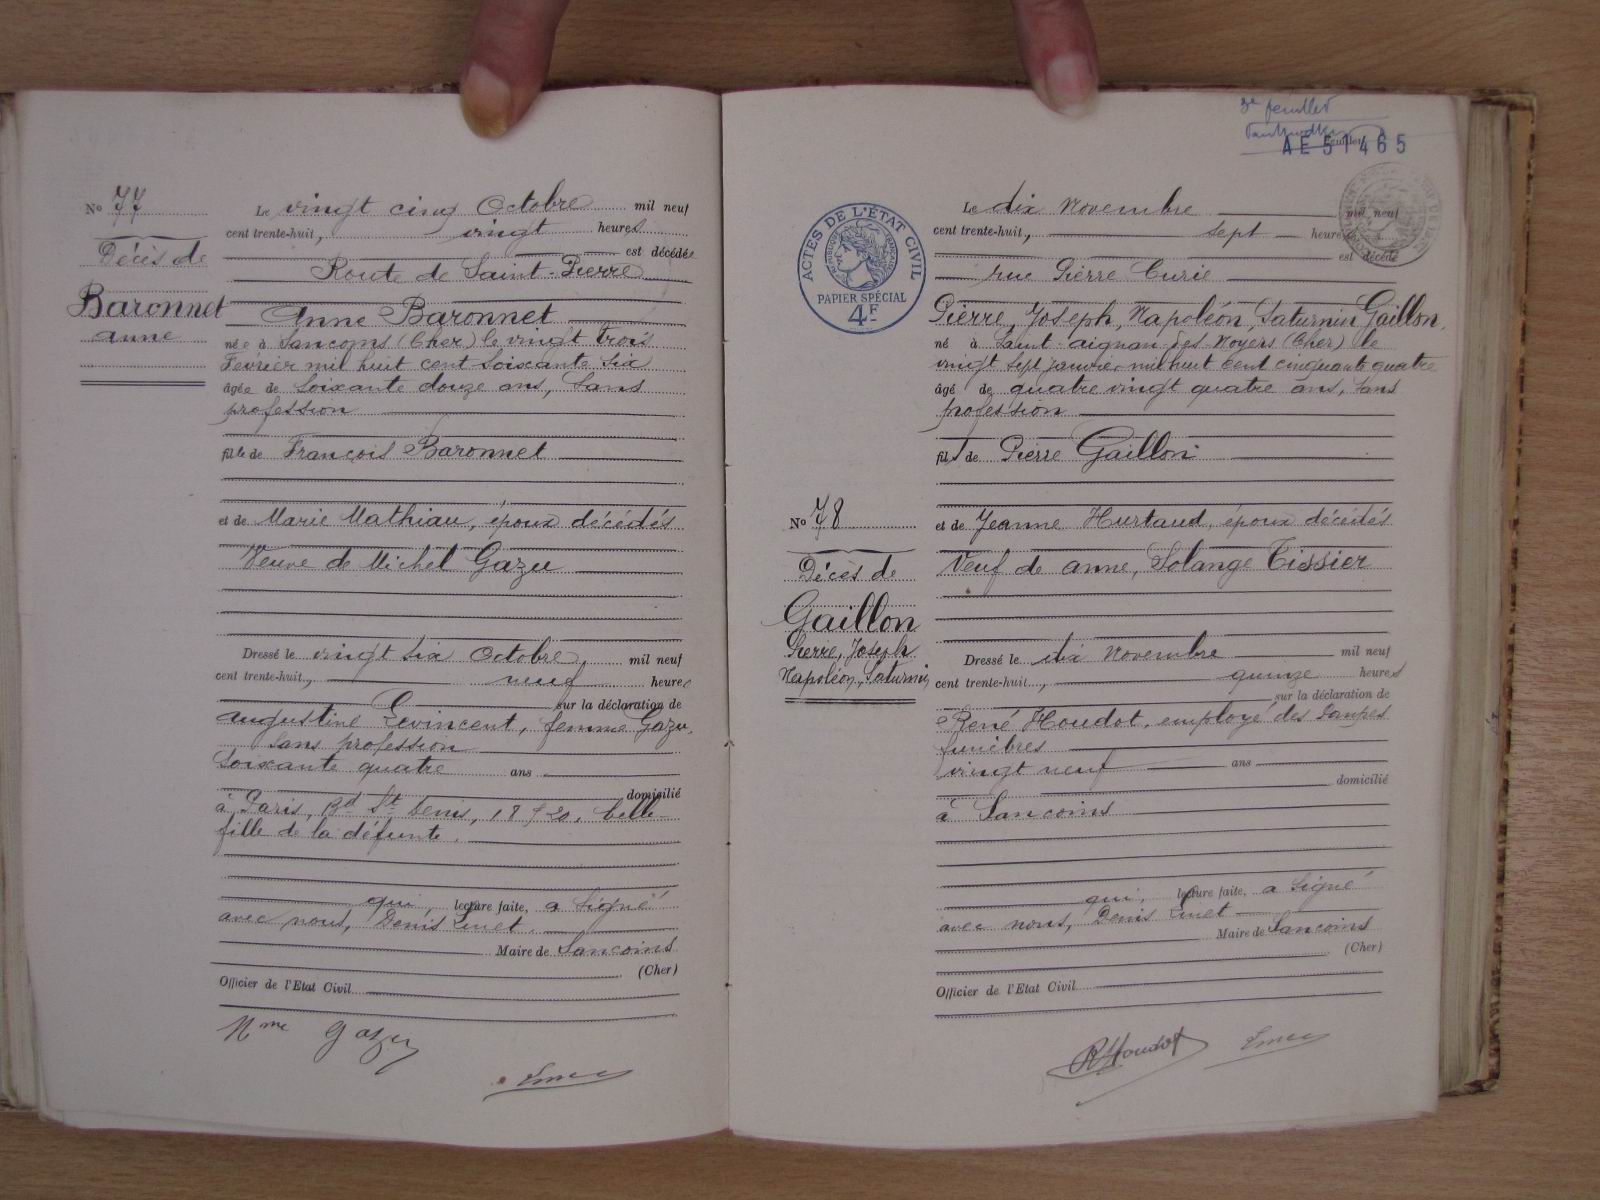 No 77
Décès de
Baronnet
anne
Le vingt cinq Octobre mil neuf
cent trente-huit, vingt heures
est décédée
Route de Saint-Pierre
Anne Baronnet
née à Sancoins (Cher) le vingt trois
Février mil huit cent soixante six
âgée de soixante douze ans, sans
profession
fille de François Baronnet
et de Marie Mathiau, époux décédés
Veuve de Michel Gazu
Dressé le vingt six Octobre, mil neuf
cent trente-huit, neuf heures
sur la déclaration de
augustine Levincent, femme Gazu,
sans profession
soixante quatre ans
domicilié
à Paris, Bd St Denis, 18 & 20, belle-
fille de la défunte.
qui, lecture faite, a signé
avec nous, Denis Linet
Maire de Sancoins
(Cher)
Officier de l'Etat Civil
Mme Gazu
3e feuillet
Feuillet
AE 51465
ACTES DE L'ÉTAT CIVIL
RÉPUBLIQUE FRANÇAISE
PAPIER SPÉCIAL
4F
Le dix Novembre mil neuf
cent trente-huit, sept heures
est décédé
rue Pierre Curie
Pierre, Joseph, Napoléon, Saturnin Gaillon
né à Saint-aignan des Noyers (Cher) le
vingt sept janvier mil huit cent cinquante quatre
âgé de quatre vingt quatre ans, sans
profession
fils de Pierre Gaillon
No 78
Décès de
Gaillon
Pierre, Joseph
Napoléon, Saturnin
et de Jeanne Hurtaud, époux décédés
Veuf de anne, Solange Tissier
Dressé le dix Novembre mil neuf
cent trente-huit, quinze heures
sur la déclaration de
René Houdot, employé des Pompes
funèbres
vingt neuf ans
domicilié
à Sancoins
qui, lecture faite, a signé
avec nous, Denis Linet
Maire de Sancoins
(Cher)
Officier de l'Etat Civil
RHoudot